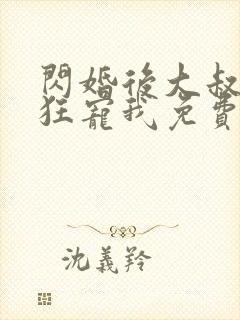 閃婚後大叔
狂寵我免費
沈義羚